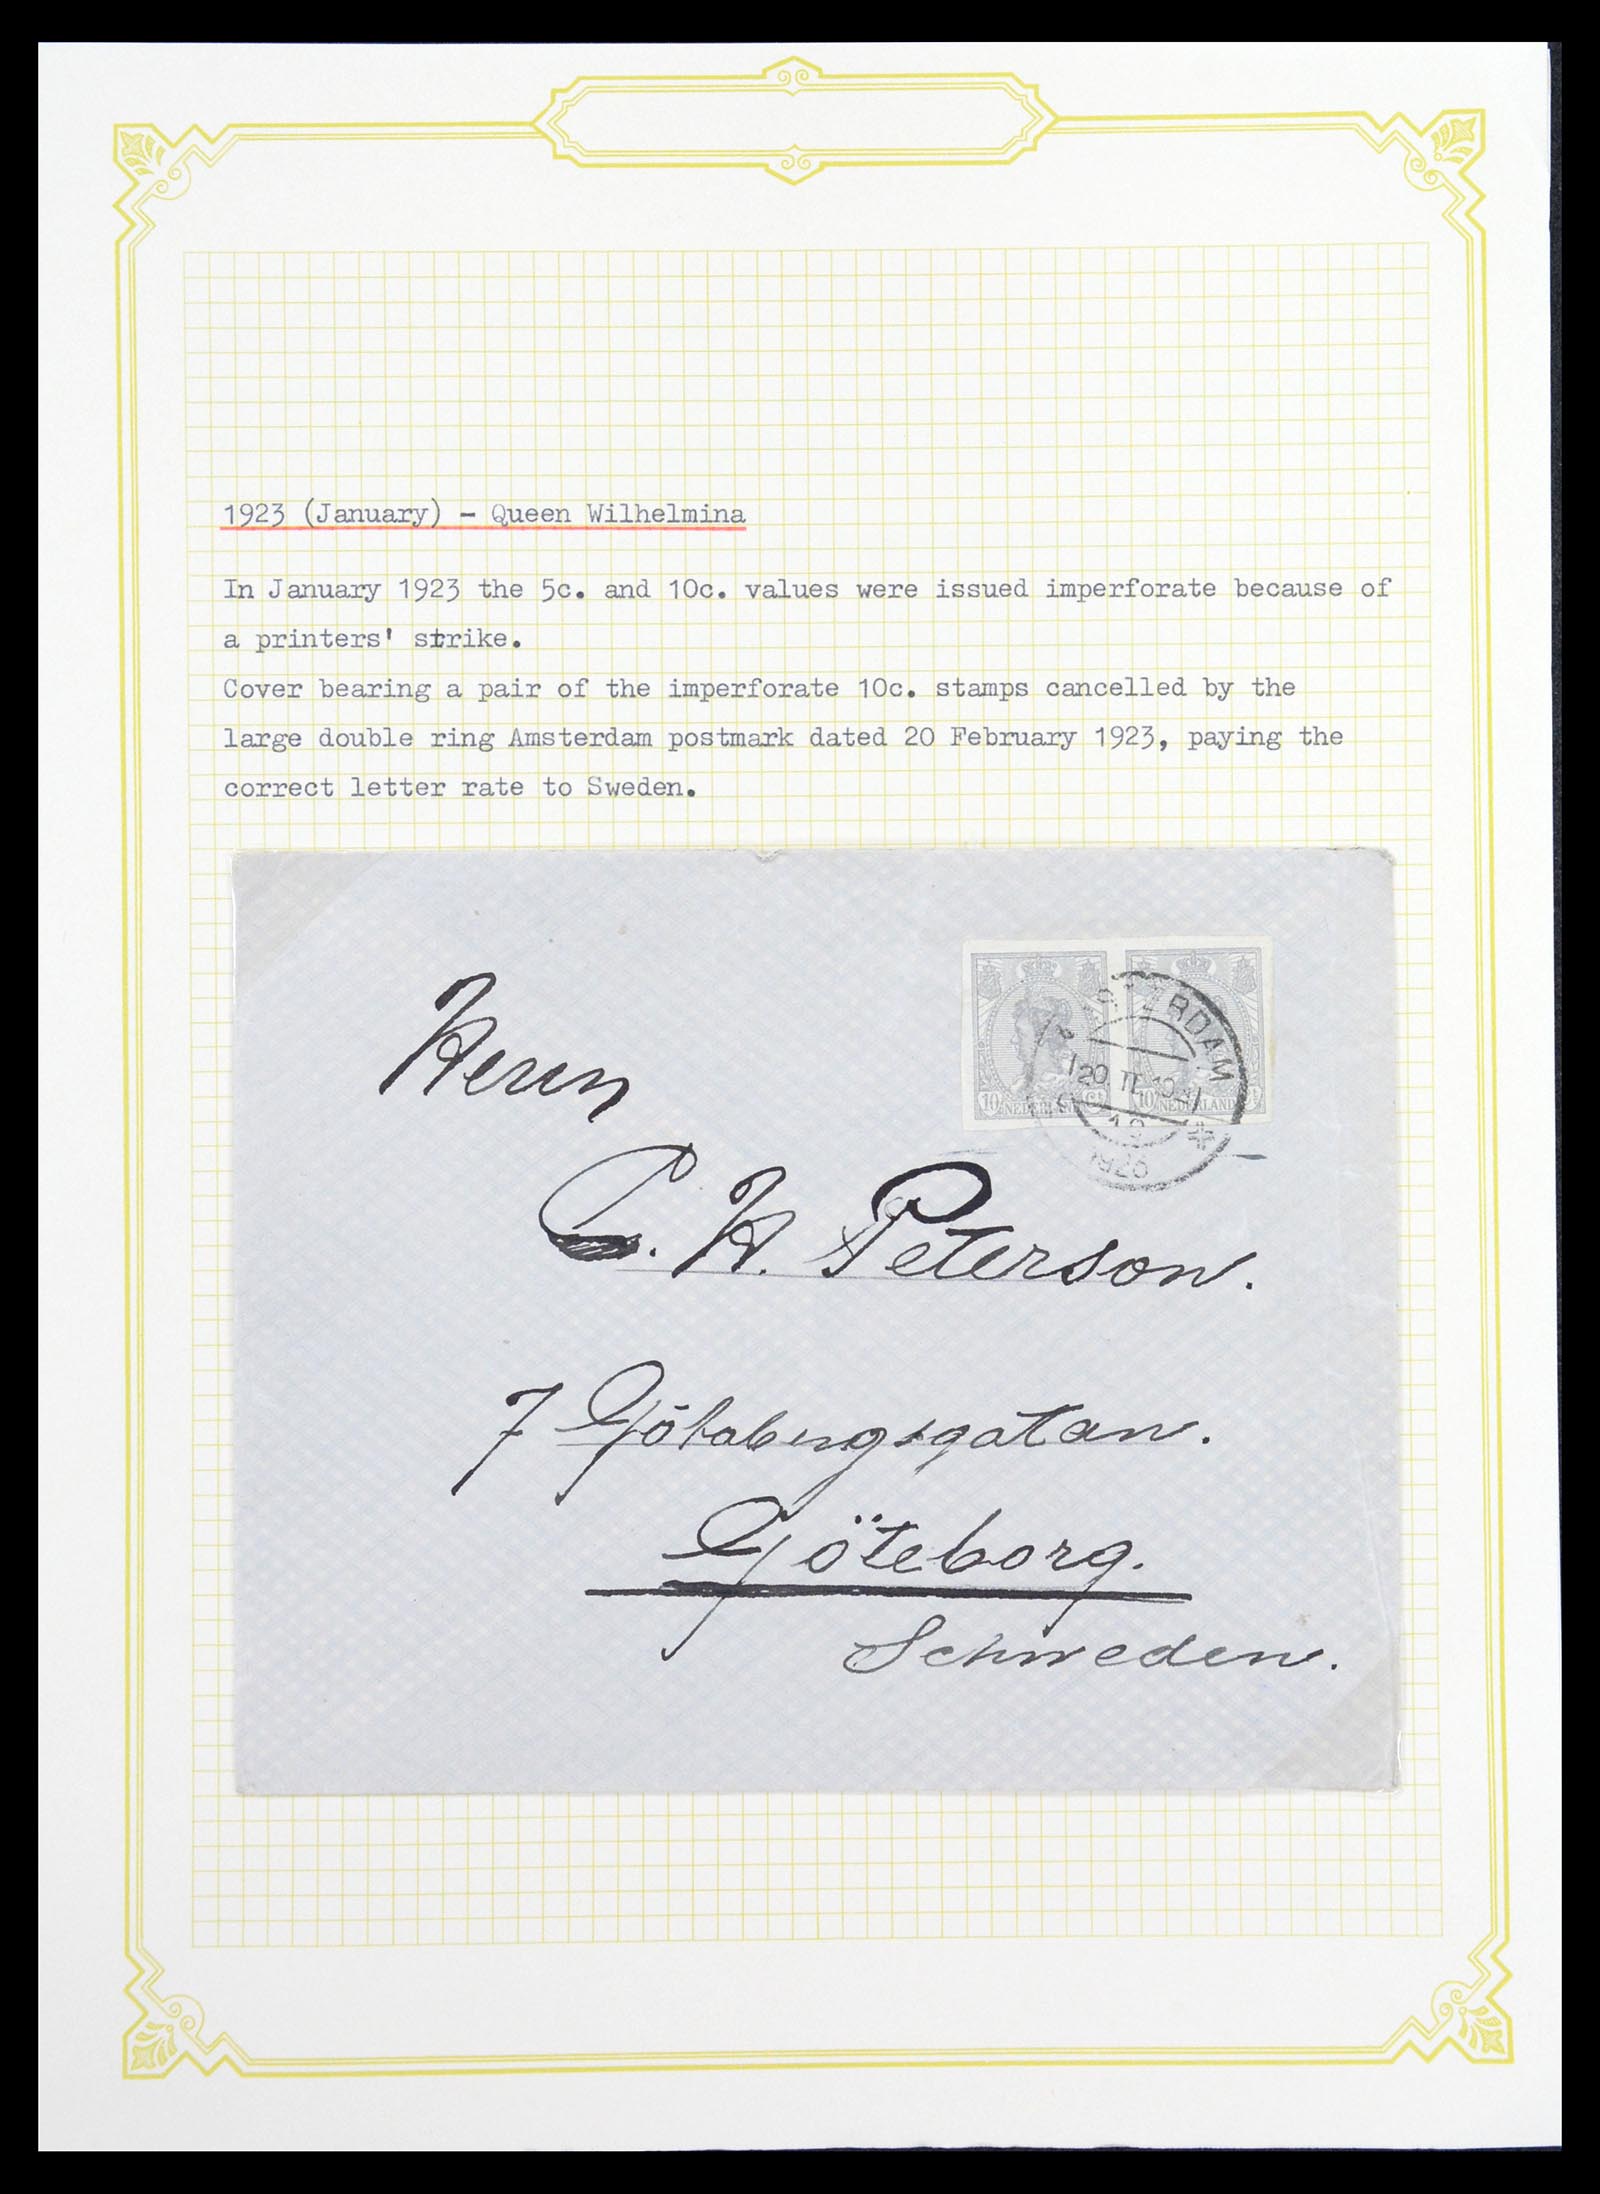 1923 (January) - Queen Wilhelmina
In January 1923 the 5c. and 10c. values were issued imperforate because of
a printers' strike.
Cover bearing a pair of the imperforate 10c. stamps cancelled by the
large double ring Amsterdam postmark dated 20 February 1923, paying the
correct letter rate to Sweden.
10 NEDERLAND Ct
10 NEDERLAND Ct
STERDAM
20 II 10
Herrn
C. H. Peterson.
7 Götabergsgatan.
Göteborg.
Schweden.